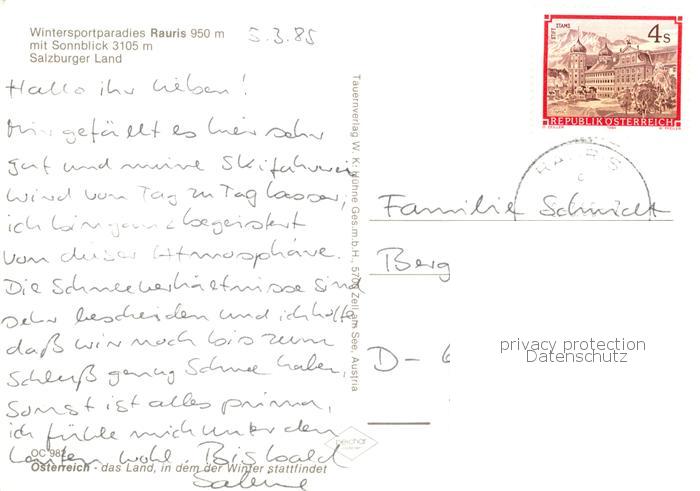 Wintersportparadies Rauris 950 m
mit Sonnblick 3105 m
Salzburger Land
5.3.85
Hallo ihr lieben!
Mir gefällt es hier sehr
gut und meine Skifahrerei
wird von Tag zu Tag besser,
ich bin ganz begeistert
von dieser Atmosphäre.
Die Schneeverhältnisse sind
sehr bescheiden und ich hoffe
daß wir noch bis zum
Schluß genug Schnee haben,
Sonst ist alles prima,
ich fühle mich unter den
Leuten wohl. Bis bald
Sabine
OC 982
Österreich - das Land, in dem der Winter stattfindet
Tauernverlag W. K. Kühne Ges.m.b.H., 5700 Zell am See, Austria
STIFT STAMS
4 S
REPUBLIK ÖSTERREICH
RAURIS
Familie Schmidt
Berg
D-6
privacy protection
Datenschutz